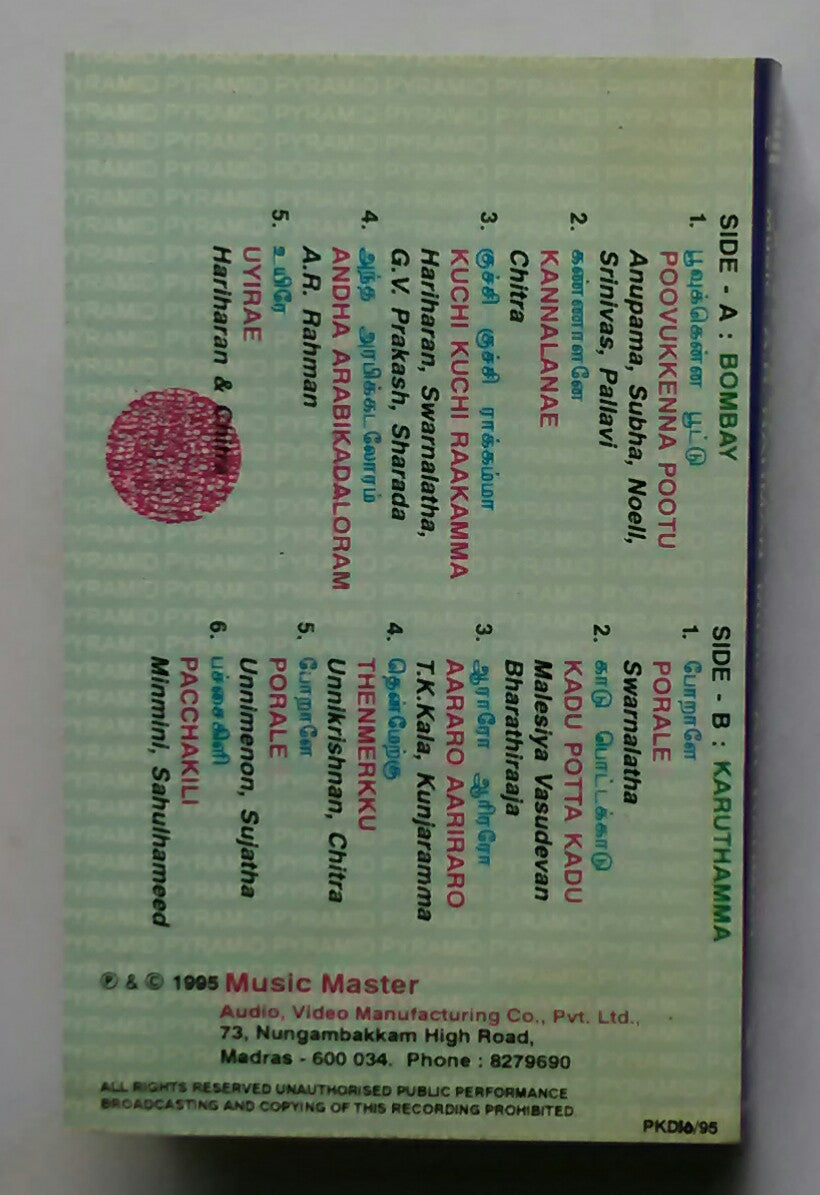 SIDE - A : BOMBAY
1. பூவுக்கென்ன பூட்டு
POOVUKKENNA POOTU
Anupama, Subha, Noell,
Srinivas, Pallavi
2. கண்ணாளனே
KANNALANAE
Chitra
3. குச்சி குச்சி ராக்கம்மா
KUCHI KUCHI RAAKAMMA
Hariharan, Swarnalatha,
G.V. Prakash, Sharada
4. அந்த அரபிக்கடலோரம்
ANDHA ARABIKADALORAM
A.R. Rahman
5. உயிரே
UYIRAE
Hariharan & Chitra
SIDE - B : KARUTHAMMA
1. போறாளே
PORALE
Swarnalatha
2. காடு பொட்டக்காடு
KADU POTTA KADU
Malesiya Vasudevan
Bharathiraaja
3. ஆராரோ ஆரிரரோ
AARARO AARIRARO
T.K.Kala, Kunjaramma
4. தென்மேற்கு
THENMERKKU
Unnikrishnan, Chitra
5. போறாளே
PORALE
Unnimenon, Sujatha
6. பச்சைகிளி
PACCHAKILI
Minmini, Sahulhameed
℗ & © 1995 Music Master
Audio, Video Manufacturing Co., Pvt. Ltd.,
73, Nungambakkam High Road,
Madras - 600 034. Phone : 8279690
ALL RIGHTS RESERVED UNAUTHORISED PUBLIC PERFORMANCE
BROADCASTING AND COPYING OF THIS RECORDING PROHIBITED
PYRAMID PYRAMID PYRAMID PYRAMID